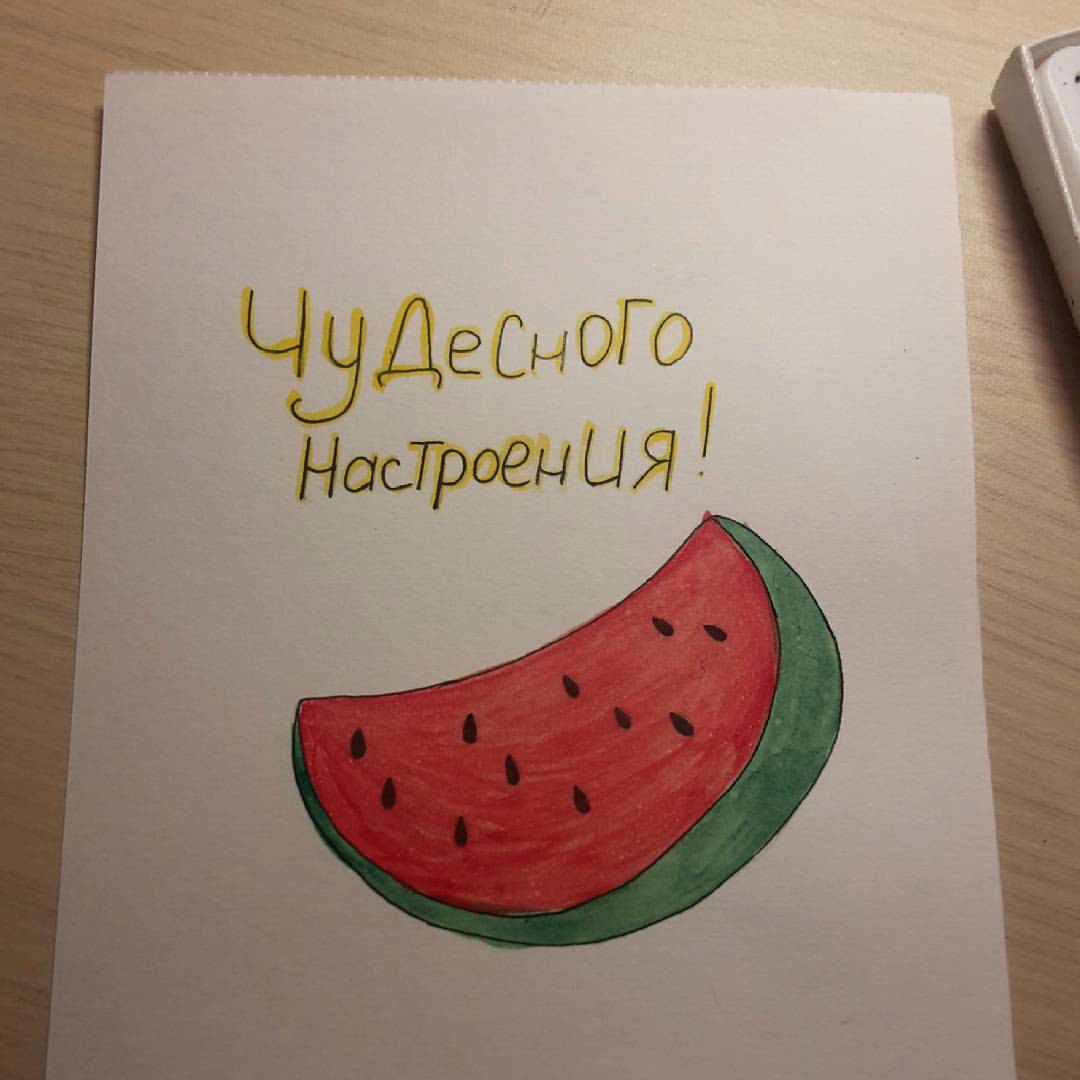 Чудесного
настроения!